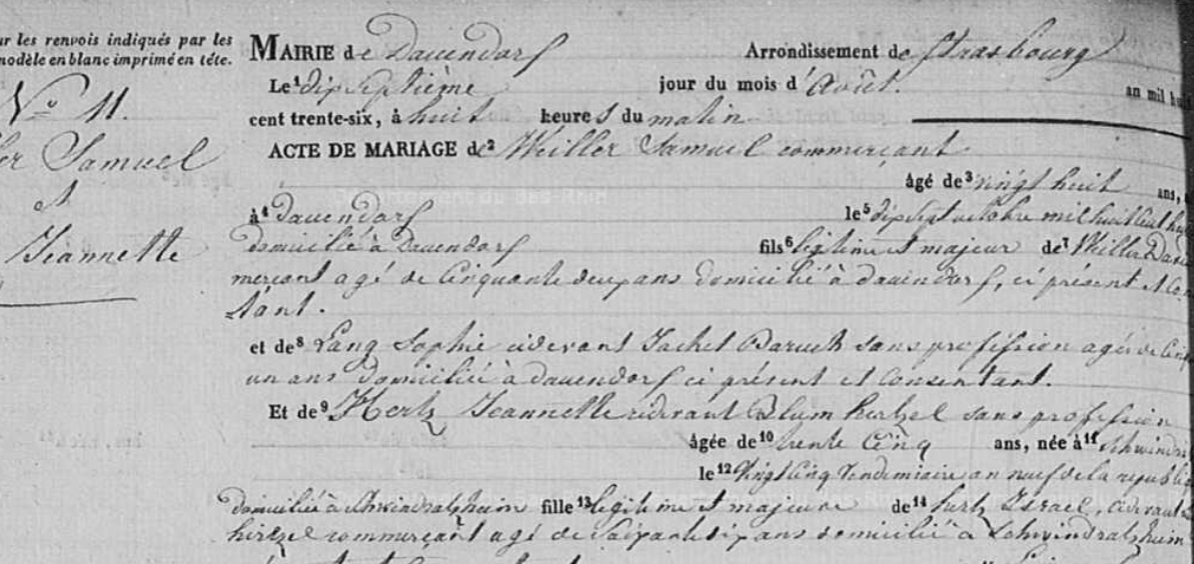 r les renvois indiqués par les
modèle en blanc imprimé en tête.
MAIRIE de Dauendorf Arrondissement de Strasbourg
Le 1 dixseptième jour du mois d'Août. an mil huit
No 11.
cent trente-six, à huit heures du matin
ACTE DE MARIAGE de 2 Weiller Samuel commerçant
Samuel
et
âgé de 3 vingt huit ans,
à 4 Dauendorf le 5 dixsept octobre mil huit cent
Jeannette
domicilié à Dauendorf fils 6 légitime et majeur de 7 Weiller
merçant agé de Cinquante deux ans domicilié à dauendorf, ci présent et Con
tant.
et de 8 Lang Sophie cidevant Baruch sans profession agée de
un ans domiciliée à dauendorf ci présent et Consentant.
Et de 9 Hertz Jeannette cidevant Blum sans profession
âgée de 10 trente Cinq ans, née à 11 schwindra
le 12 Vingt Cinq Vendemiaire an neuf de la republi
domiciliée à Schwindratzheim fille 13 légitime et majeure de 14 hertz Israel, cidevant
hirtzel commerçant agé de Soixante six ans domicilié à Schwindratzheim